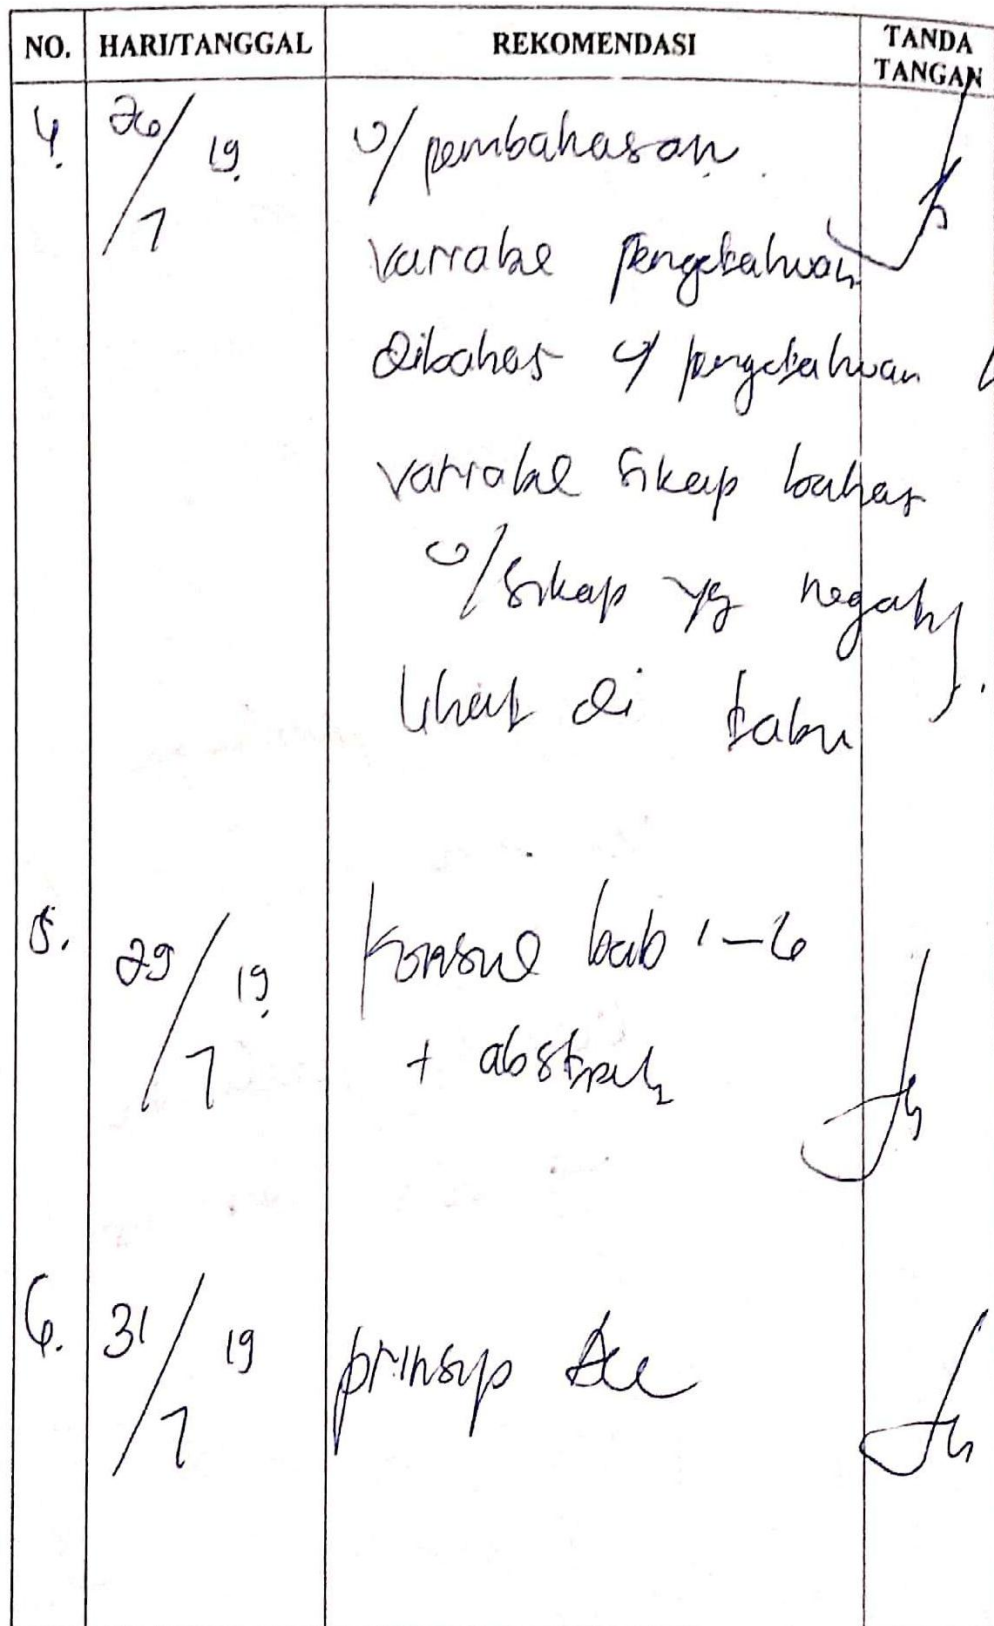 NO. HARI/TANGGAL REKOMENDASI TANDA TANGAN
4. 26/7 19 u/ pembahasan
variabel pengetahuan
dibahas u/ pengetahuan
variabel sikap bahas
u/ sikap yg negatif.
lihat di tabu
5. 29/7 19 Konsul bab 1-6
+ abstrak
6. 31/7 19 prinsip Acc